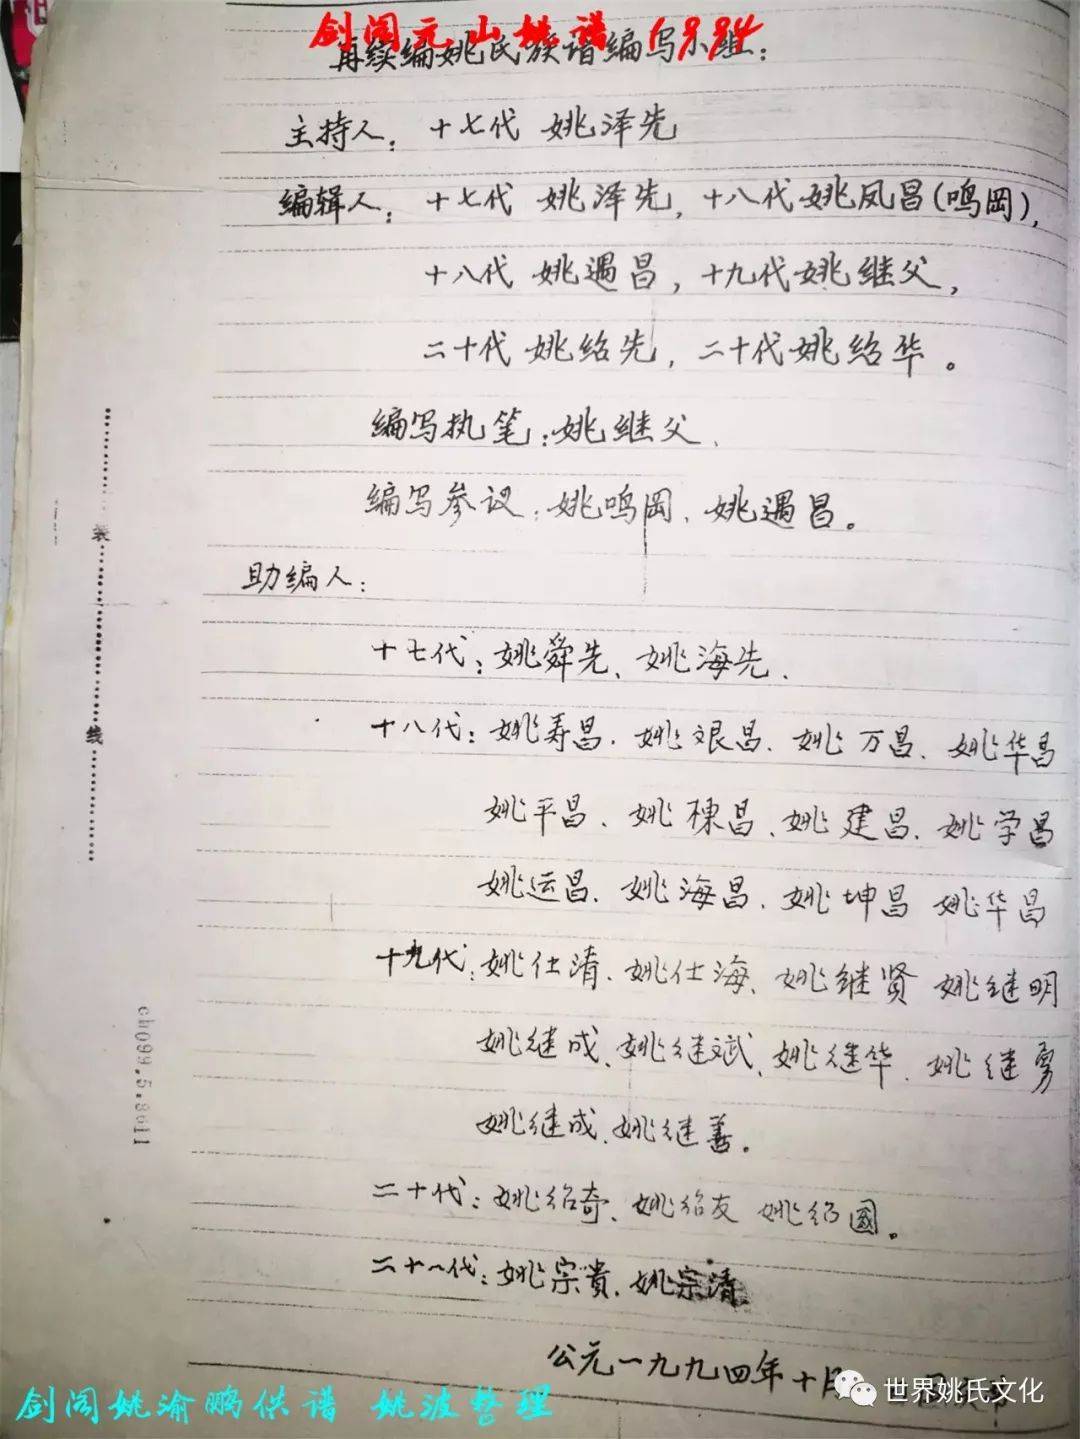 剑阁元山姚谱 1994
再续编姚氏族谱编写小组：
主持人：十七代 姚泽先
编辑人：十七代 姚泽先，十八代姚凤昌(鸣岡)，
十八代 姚遇昌，十九代姚继父，
二十代 姚绍先，二十代姚绍华。
编写执笔：姚继父、
编写参议：姚鸣岡、姚遇昌。
助编人：
十七代：姚舜先、姚海先、
十八代：姚寿昌、姚艮昌、姚万昌、姚华昌
姚平昌、姚楝昌、姚建昌、姚学昌
姚运昌、姚海昌、姚坤昌 姚华昌
十九代：姚仕清、姚仕海、姚继贤 姚继明
姚继成、姚继斌、姚继华、姚继勇
姚继成、姚继善。
二十代：姚绍奇、姚绍友 姚绍國。
二十一代：姚宗贵、姚宗清
公元一九九四年十月
装
线
cho099.5.8611
世界姚氏文化
剑阁姚渝鹏供谱 姚波整理